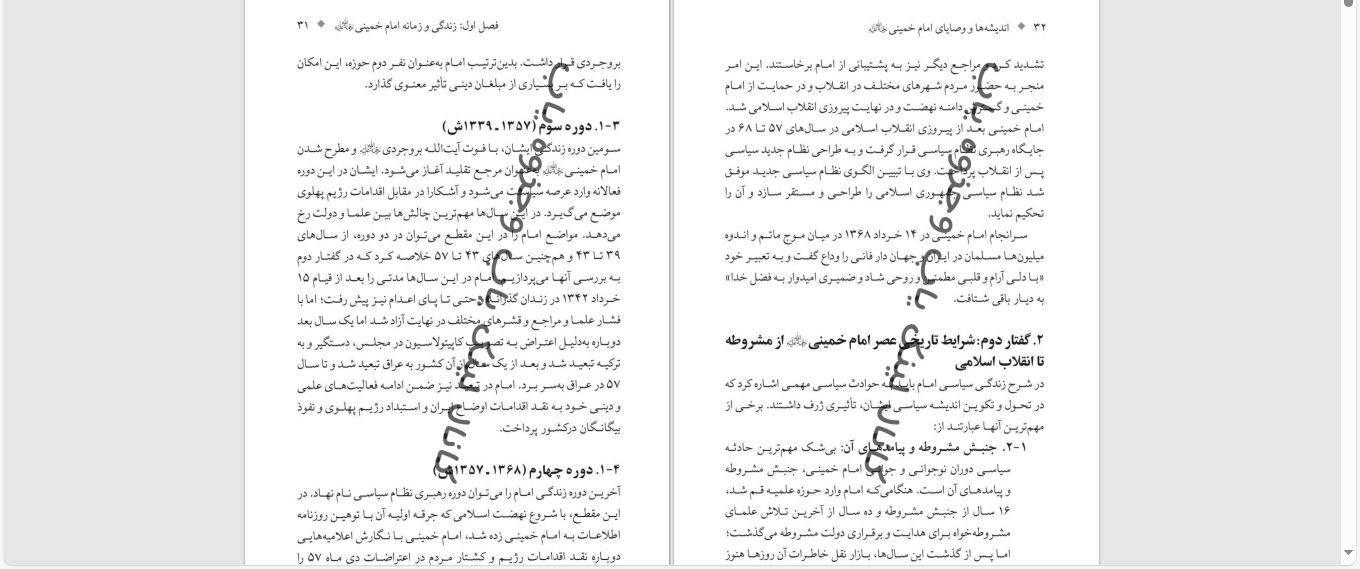 فصل اول: زندگی و زمانه امام خمینی ۳۱
بروجردی قرار داشت. بدین‌ترتیب امام به‌عنوان نفر دوم حوزه، این امکان
را یافت که بر بسیاری از مبلغان دینی تأثیر معنوی گذارد.
۱-۳. دوره سوم (۱۳۵۷ـ۱۳۳۹ش)
سومین دوره زندگی ایشان، با فوت آیت‌الله بروجردی و مطرح شدن
امام خمینی به‌عنوان مرجع تقلید آغاز می‌شود. ایشان در این دوره
فعالانه وارد عرصه سیاست می‌شود و آشکارا در مقابل اقدامات رژیم پهلوی
موضع می‌گیرد. در این سال‌ها مهم‌ترین چالش‌ها بین علما و دولت رخ
می‌دهد. مواضع امام را در این مقطع می‌توان در دو دوره، از سال‌های
۳۹ تا ۴۳ و هم‌چنین سال‌های ۴۳ تا ۵۷ خلاصه کرد که در گفتار دوم
به بررسی آنها می‌پردازیم. امام در این سال‌ها مدتی را بعد از قیام ۱۵
خرداد ۱۳۴۲ در زندان گذراند و حتی تا پای اعدام نیز پیش رفت؛ اما با
فشار علما و مراجع و قشرهای مختلف در نهایت آزاد شد اما یک سال بعد
دوباره به‌دلیل اعتراض به تصویب کاپیتولاسیون در مجلس، دستگیر و به
ترکیه تبعید شد و بعد از یک سال از آن کشور به عراق تبعید شد و تا سال
۵۷ در عراق به‌سر برد. امام در تبعید نیز ضمن ادامه فعالیت‌های علمی
و دینی خود به نقد اقدامات اوضاع ایران و استبداد رژیم پهلوی و نفوذ
بیگانگان درکشور پرداخت.
۱-۴. دوره چهارم (۱۳۶۸ـ۱۳۵۷ش)
آخرین دوره زندگی امام را می‌توان دوره رهبری نظام سیاسی نام نهاد. در
این مقطع، با شروع نهضت اسلامی که جرقه اولیه آن با توهین روزنامه
اطلاعات به امام خمینی زده شد، امام خمینی با نگارش اعلامیه‌هایی
دوباره نقد اقدامات رژیم و کشتار مردم در اعتراضات دی ماه ۵۷ را
کانال لینک یاب وجزوه یاب
۳۲ اندیشه‌ها و وصایای امام خمینی
تشدید کرد و مراجع دیگر نیز به پشتیبانی از امام برخاستند. این امر
منجر به حضور مردم شهرهای مختلف در انقلاب و در حمایت از امام
خمینی و گسترش دامنه نهضت و در نهایت پیروزی انقلاب اسلامی شد.
امام خمینی بعد از پیروزی انقلاب اسلامی در سال‌های ۵۷ تا ۶۸ در
جایگاه رهبری نظام سیاسی قرار گرفت و به طراحی نظام جدید سیاسی
پس از انقلاب پرداخت. وی با تبیین الگوی نظام سیاسی جدید موفق
شد نظام سیاسی جمهوری اسلامی را طراحی و مستقر سازد و آن را
تحکیم نماید.
سرانجام امام خمینی در ۱۴ خرداد ۱۳۶۸ در میان موج ماتم و اندوه
میلیون‌ها مسلمان در ایران و جهان دار فانی را وداع گفت و به تعبیر خود
«با دلی آرام و قلبی مطمئن و روحی شاد و ضمیری امیدوار به فضل خدا»
به دیار باقی شتافت.
۲. گفتار دوم: شرایط تاریخی عصر امام خمینی از مشروطه
تا انقلاب اسلامی
در شرح زندگی سیاسی امام باید به حوادث سیاسی مهمی اشاره کرد که
در تحول و تکوین اندیشه سیاسی ایشان، تأثیری ژرف داشتند. برخی از
مهم‌ترین آنها عبارتند از:
۲-۱. جنبش مشروطه و پیامدهای آن: بی‌شک مهم‌ترین حادثه
سیاسی دوران نوجوانی و جوانی امام خمینی، جنبش مشروطه
و پیامدهای آن است. هنگامی‌که امام وارد حوزه علمیه قم شد،
۱۶ سال از جنبش مشروطه و ده سال از آخرین تلاش علمای
مشروطه‌خواه برای هدایت و برقراری دولت مشروطه می‌گذشت؛
اما پس از گذشت این سال‌ها، بازار نقل خاطرات آن روزها هنوز
کانال لینک یاب وجزوه یاب